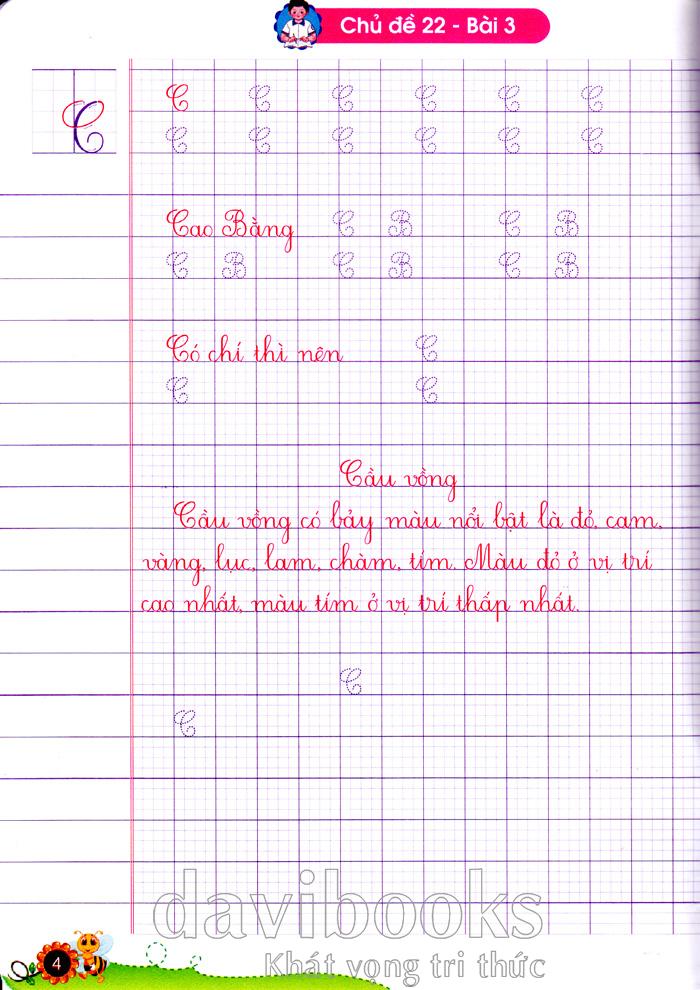 Chủ đề 22 - Bài 3
C C C C C C C
C C C C C C
Cao Bằng C B C B
C B C B C B
Có chí thì nên C
C C
Cầu vồng
Cầu vồng có bảy màu nổi bật là đỏ, cam,
vàng, lục, lam, chàm, tím. Màu đỏ ở vị trí
cao nhất, màu tím ở vị trí thấp nhất.
C
C
davibooks
Khát vọng tri thức
4